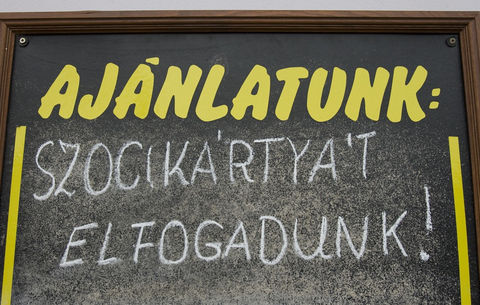 AJÁNLATUNK:
SZOCIKÁRTYÁT
ELFOGADUNK!